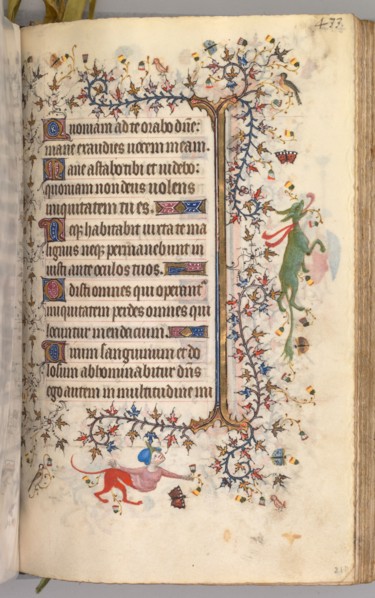 477
Quoniam ad te orabo dñe:
mane exaudies uocem meam.
Mane astabo tibi et uidebo:
quoniam non deus uolens
iniquitatem tu es.
Neqȝ habitabit iuxta te ma
lignus neqȝ permanebunt in
iusti ante oculos tuos.
Odisti omnes qui operant᷑
iniquitatem perdes omnes qui
locuntur mendacium.
Uirum sanguinum et do
losum abhominabitur dñs
ego autem in multitudine mi